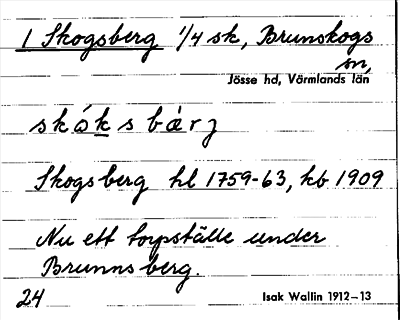 1 Skogsberg 1/4 sk, Brunskogs
sn,
Jösse hd, Värmlands län
skóksbærj
Skogsberg hl 1759-63, kb 1909
Nu ett torpställe under
Brunnsberg.
24
Isak Wallin 1912–13